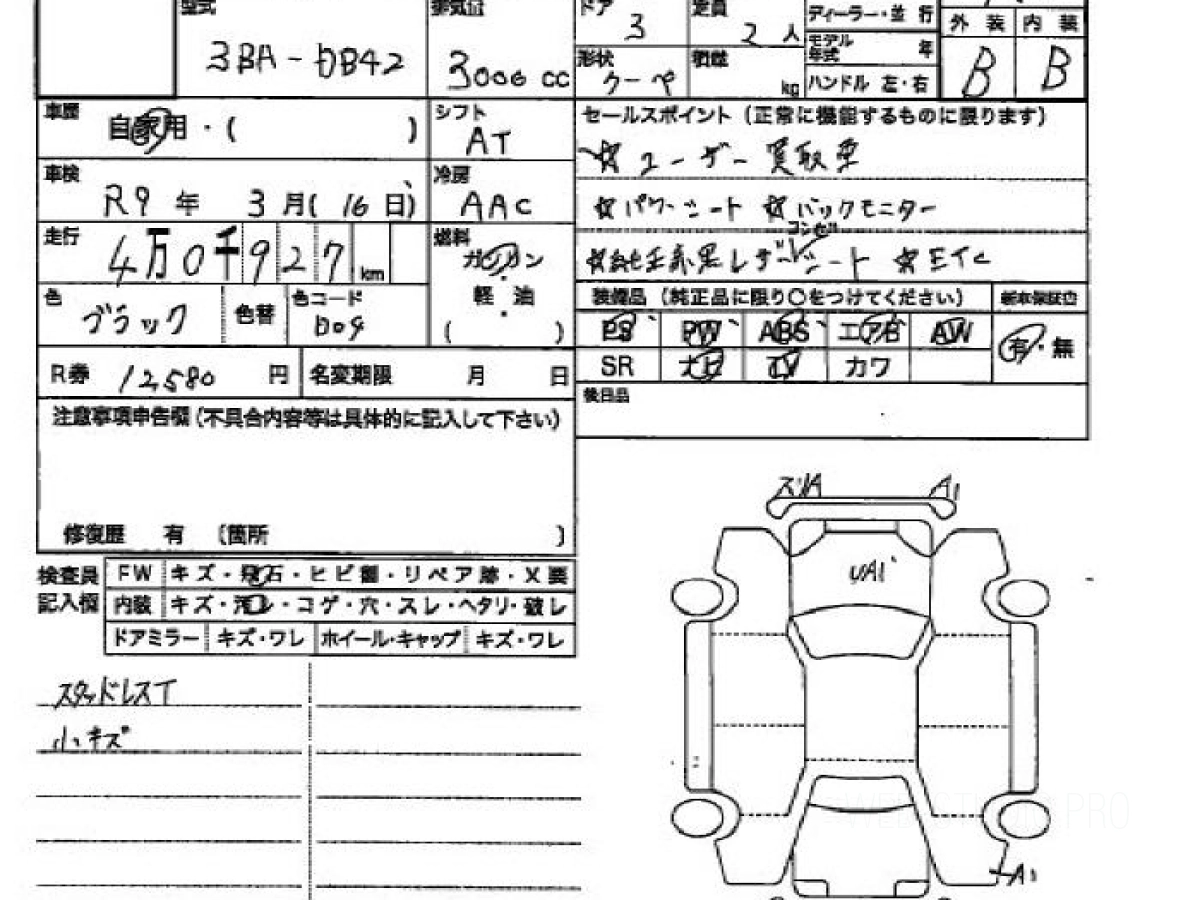 型式 排気量 ドア 定員 ディーラー・並 行 外 装 内 装
3BA-DB42 3000 cc 3 2 人 モデル年式 年 B B
形状 クーペ 積載 kg ハンドル 左・右
車歴 自家用・( ) シフト AT セールスポイント (正常に機能するものに限ります)
☆ユーザー買取車
車検 R9 年 3 月( 16 日) 冷房 AAC
☆パワーシート ☆バックモニター
走行 4万0千927 km 燃料 ガソリン・軽 油・( )
コンビ
☆純正赤黒レザーシート ☆ETC
色 ブラック 色替 色コード D04
装備品 (純正品に限り○をつけてください) 新車保証書
PS PW ABS エアB AW 有・無
SR ナビ TV カワ
R券 12,580 円 名変期限 月 日
後日品
注意事項申告欄(不具合内容等は具体的に記入して下さい)
修復歴 有 〔箇所 〕
検査員記入欄
FW キズ・飛石・ヒビ割・リペア跡・X要
内装 キズ・汚レ・コゲ・穴・スレ・ヘタリ・破レ
ドアミラー キズ・ワレ ホイール・キャップ キズ・ワレ
スタッドレスT
小キズ
ズリA A1
UA1
A1